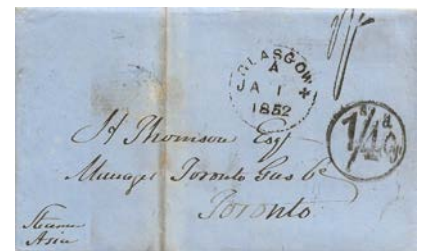 GLASGOW
A
A 1
1852
H Thomson Esqr
Manager Toronto Gas Co
Toronto
Steamer
Asia